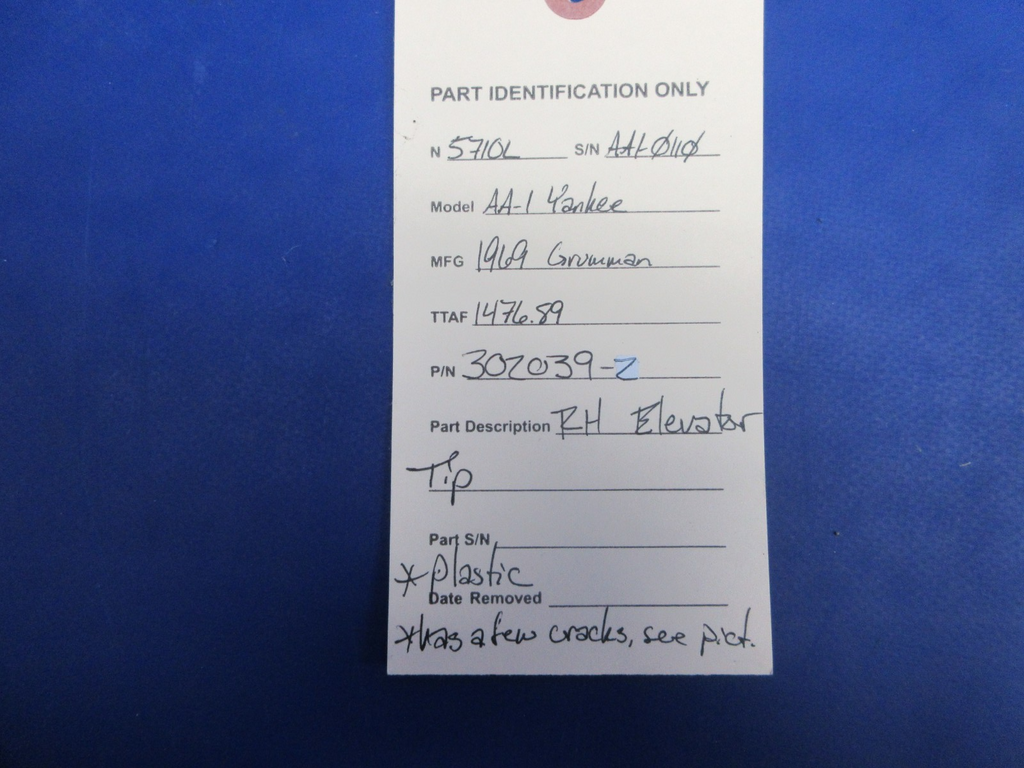 PART IDENTIFICATION ONLY
N 5710L S/N AA1-0110
Model AA-1 Yankee
MFG 1969 Grumman
TTAF 1476.89
P/N 302039-2
Part Description RH Elevator
Tip
Part S/N
* Plastic
Date Removed
* Has a few cracks, see pict.